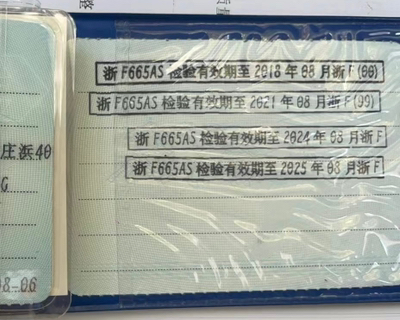 浙 F665AS 检验有效期至 2018 年 08 月浙 F(00)
浙 F665AS 检验有效期至 2021 年 08 月浙 F(99)
浙 F665AS 检验有效期至 2024 年 08 月浙 F
浙 F665AS 检验有效期至 2025 年 08 月浙 F
庄浜40
G
08-06